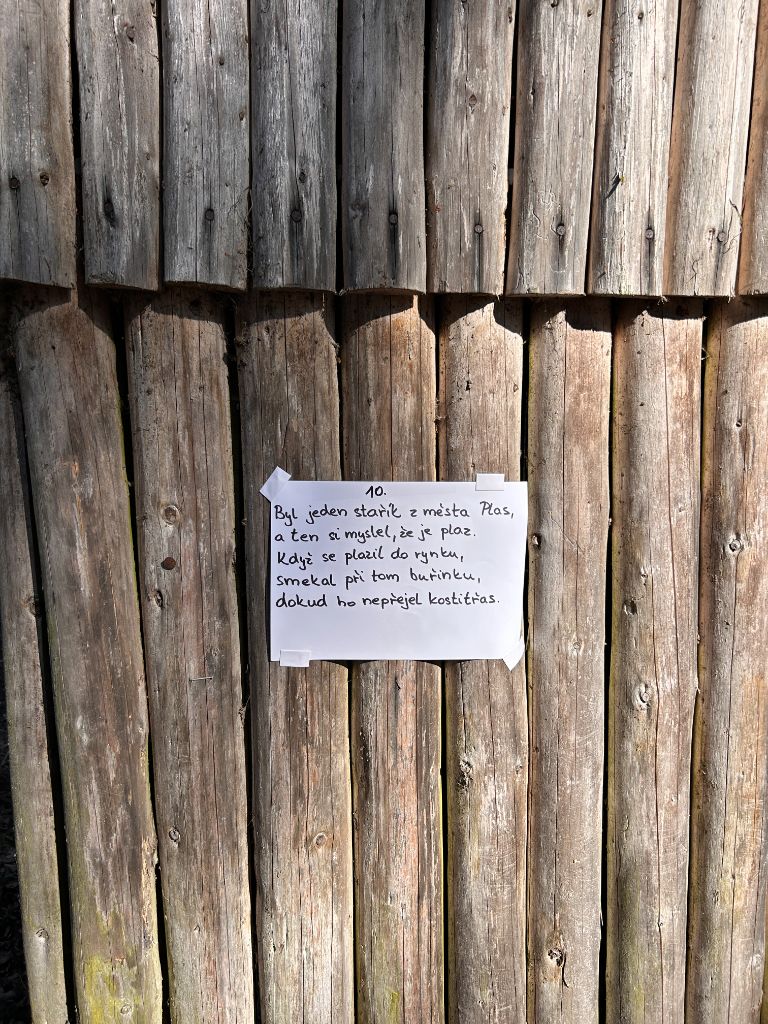 10.
Byl jeden stařík z města Plas,
a ten si myslel, že je plaz.
Když se plazil do rynku,
smekal při tom buřinku,
dokud ho nepřejel kostitřas.